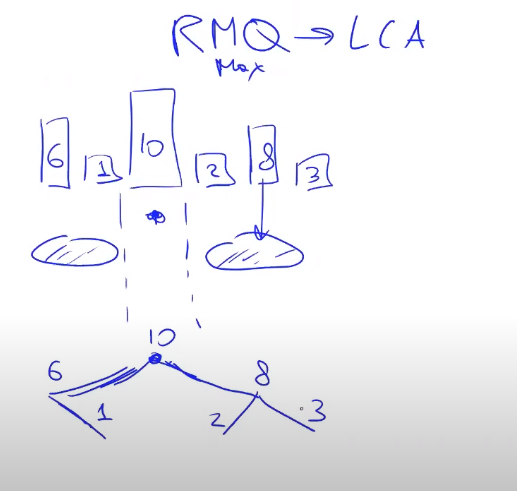 RMQ → LCA
Max
6 1 10 2 8 3
10
6 8
1 2 3